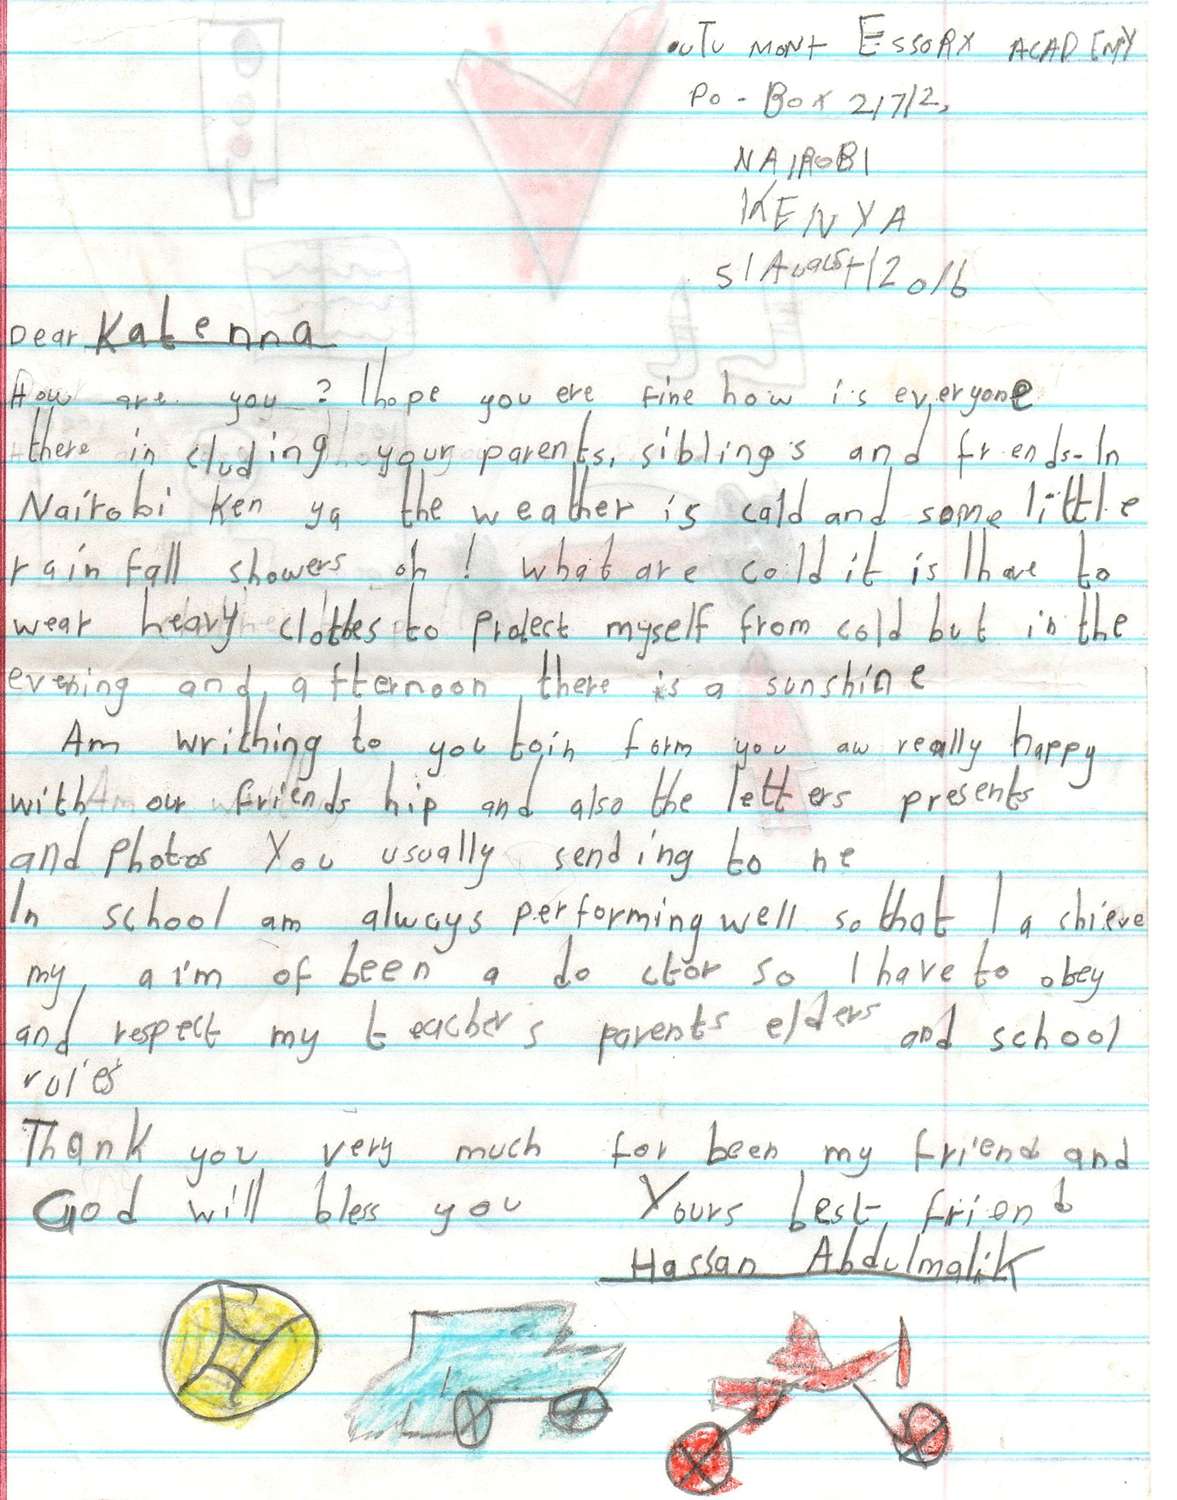 outu mont Essorx ACADEMY
Po - Box 21712,
NAIROBI
KENYA
5/August/2016
Dear Katenna
How are you? I hope you ere fine how is everyone
there in cluding your parents, sibling's and friends-In
Nairobi Ken ya the weather is cald and some little
rain fall showers oh! what are coild it is I have to
wear heavy clothes to protect myself from cold but in the
evening and afternoon there is a sunshine
Am writhing to you to in form you aw really happy
with our friends hip and also the letters presents
and photos You usually sending to me
In school am always performing well so that I a chieve
my aim of been a do ctor so I have to obey
and respect my teacher's parents elders and school
rules
Thank you very much for been my friend and
God will bless you Yours best friend
Hassan Abdulmalik